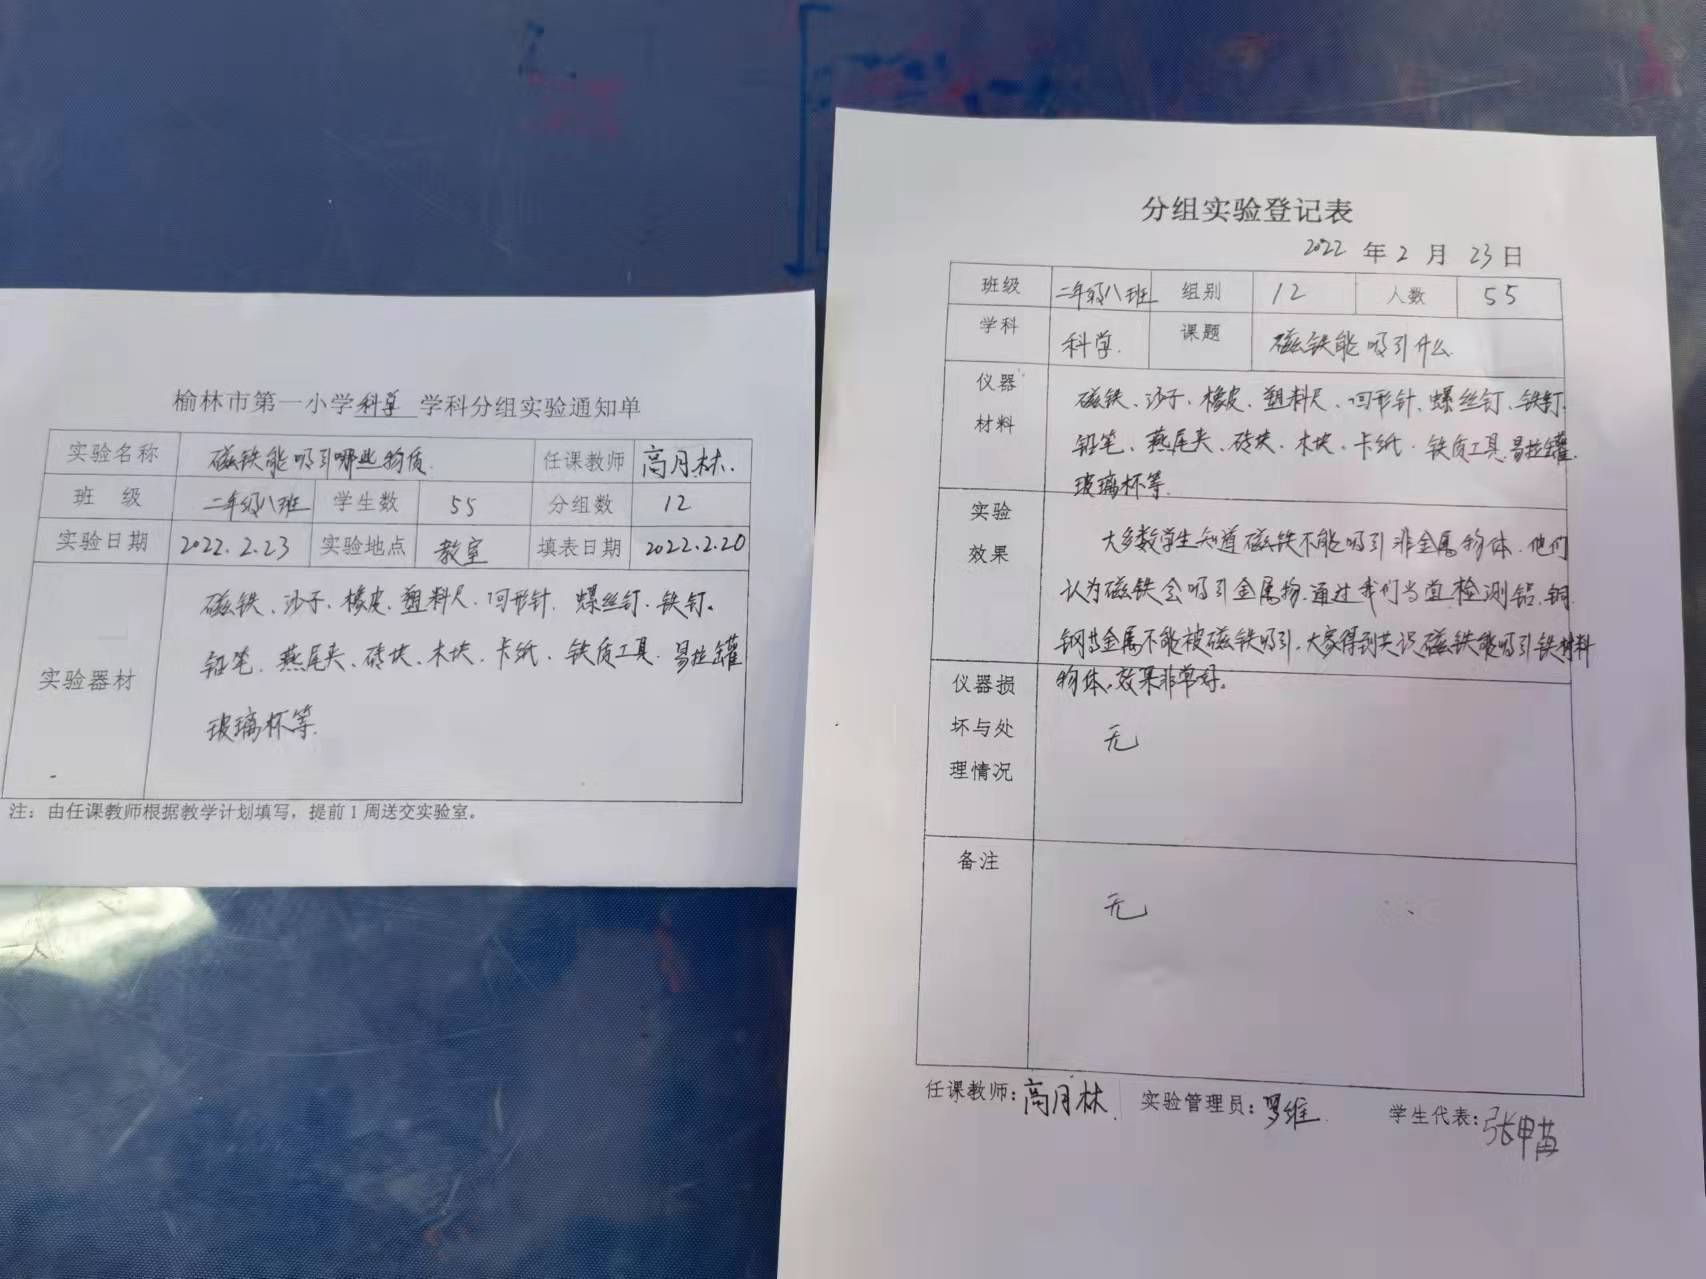 榆林市第一小学科学 学科分组实验通知单
实验名称 磁铁能吸引哪些物质. 任课教师 高月林.
班 级 二年级八班 学生数 55 分组数 12
实验日期 2022.2.23 实验地点 教室 填表日期 2022.2.20
实验器材
磁铁、沙子、橡皮、塑料尺、回形针、螺丝钉、铁钉、
铅笔、燕尾夹、砖块、木块、卡纸、铁质工具、易拉罐
玻璃杯等.
注：由任课教师根据教学计划填写，提前1周送交实验室。
分组实验登记表
2022 年 2 月 23 日
班级 二年级八班 组别 12 人数 55
学科 科学. 课题 磁铁能吸引什么
仪器
材料
磁铁、沙子、橡皮、塑料尺、回形针、螺丝钉、铁钉.
铅笔、燕尾夹、砖块、木块、卡纸、铁质工具、易拉罐.
玻璃杯等.
实验
效果
大多数学生知道磁铁不能吸引非金属物体.他们
认为磁铁会吸引金属物.通过我们当 检测铝、铜
金属不能被磁铁吸引,大家得到共识磁铁能吸引铁材料
物体,效果非常好。
仪器损
坏与处
理情况
无
备注
无
任课教师：高月林 实验管理员：罗维. 学生代表：张甲